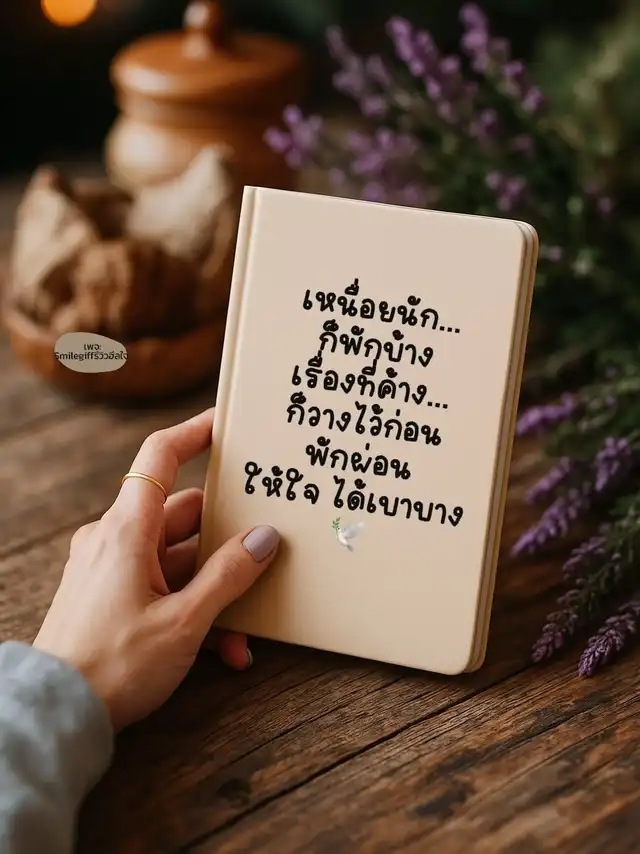 เหนื่อยนัก...
ก็พักบ้าง
เรื่องที่ค้าง...
ก็วางไว้ก่อน
พักผ่อน
ให้ใจ ได้เบาบาง
เพจ:
Smilegiffรีวิวฮีลใจ